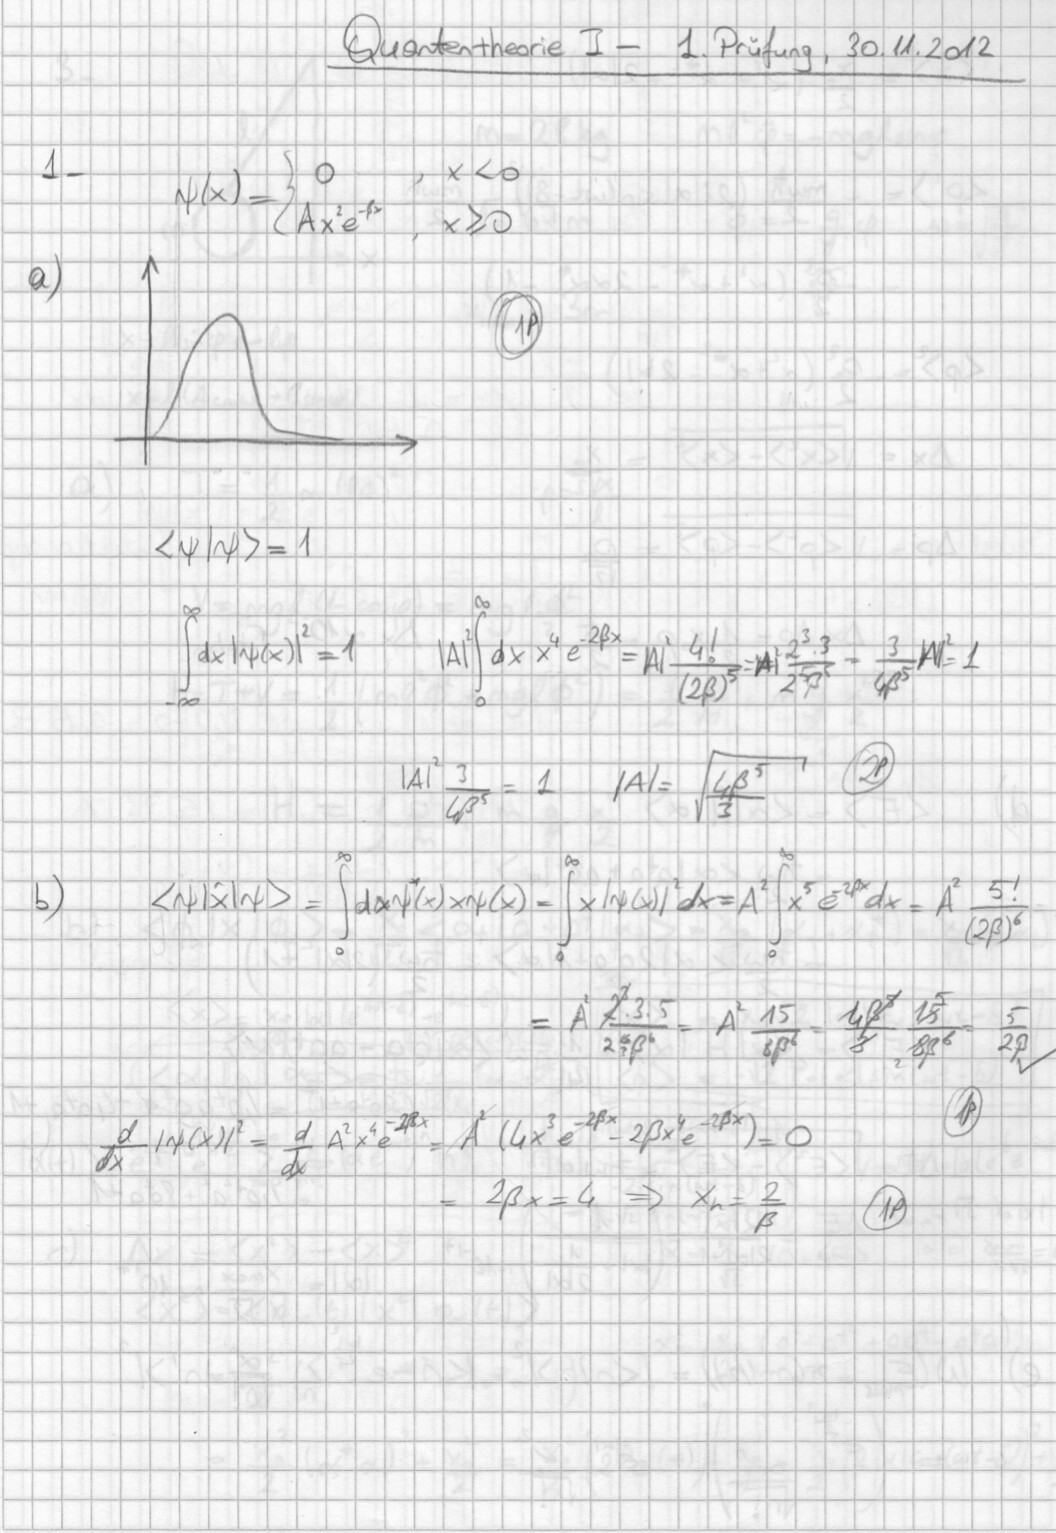 Quantentheorie I – 1. Prüfung, 30.11.2012
1- ψ(x) = { 0 , x < 0
Ax²e^{-βx} , x ≥ 0
a)
1P
<ψ|ψ> = 1
∫_{-∞}^{∞} dx |ψ(x)|² = 1 |A|² ∫_0^∞ dx x⁴ e^{-2βx} = |A|² 4!/(2β)⁵ = |A|² 2³·3/2⁵β⁵ = 3/4β⁵ |A|² = 1
|A|² 3/4β⁵ = 1 |A| = √(4β⁵/3) 2P
b) <ψ|x̂|ψ> = ∫_0^∞ dx ψ*(x) x ψ(x) = ∫_0^∞ x |ψ(x)|² dx = A² ∫_0^∞ x⁵ e^{-2βx} dx = A² 5!/(2β)⁶
= A² 2³·3·5/2⁶β⁶ = A² 15/8β⁶ = 4β⁵/3 15/8β⁶ = 5/2β ✓
1P
d/dx |ψ(x)|² = d/dx A² x⁴ e^{-2βx} = A² (4x³ e^{-2βx} - 2βx⁴ e^{-2βx}) = 0
= 2βx = 4 ⇒ x_n = 2/β 1P